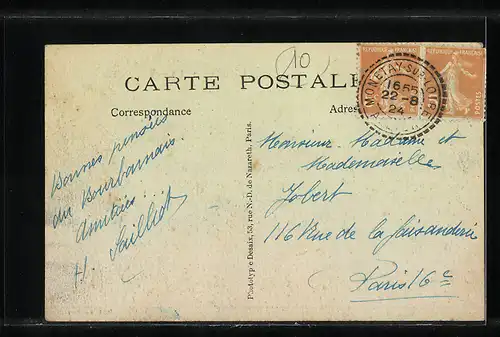 10
REPUBLIQUE FRANCAISE
REPUBLIQUE FRANCAISE
POSTES
MONETAY-SUR-LOIRE
16 55
22-8
24
CARTE POSTALE
Correspondance
Adres
Bonnes pensées
du Bourbonnais.
Amitiés...
H. Sailliot
Phototypie Desaix, 53, rue N.-D. de Nazareth, Paris.
Monsieur Madame et
Mademoiselle
Jobert
116 Rue de la faisanderie
Paris 16e